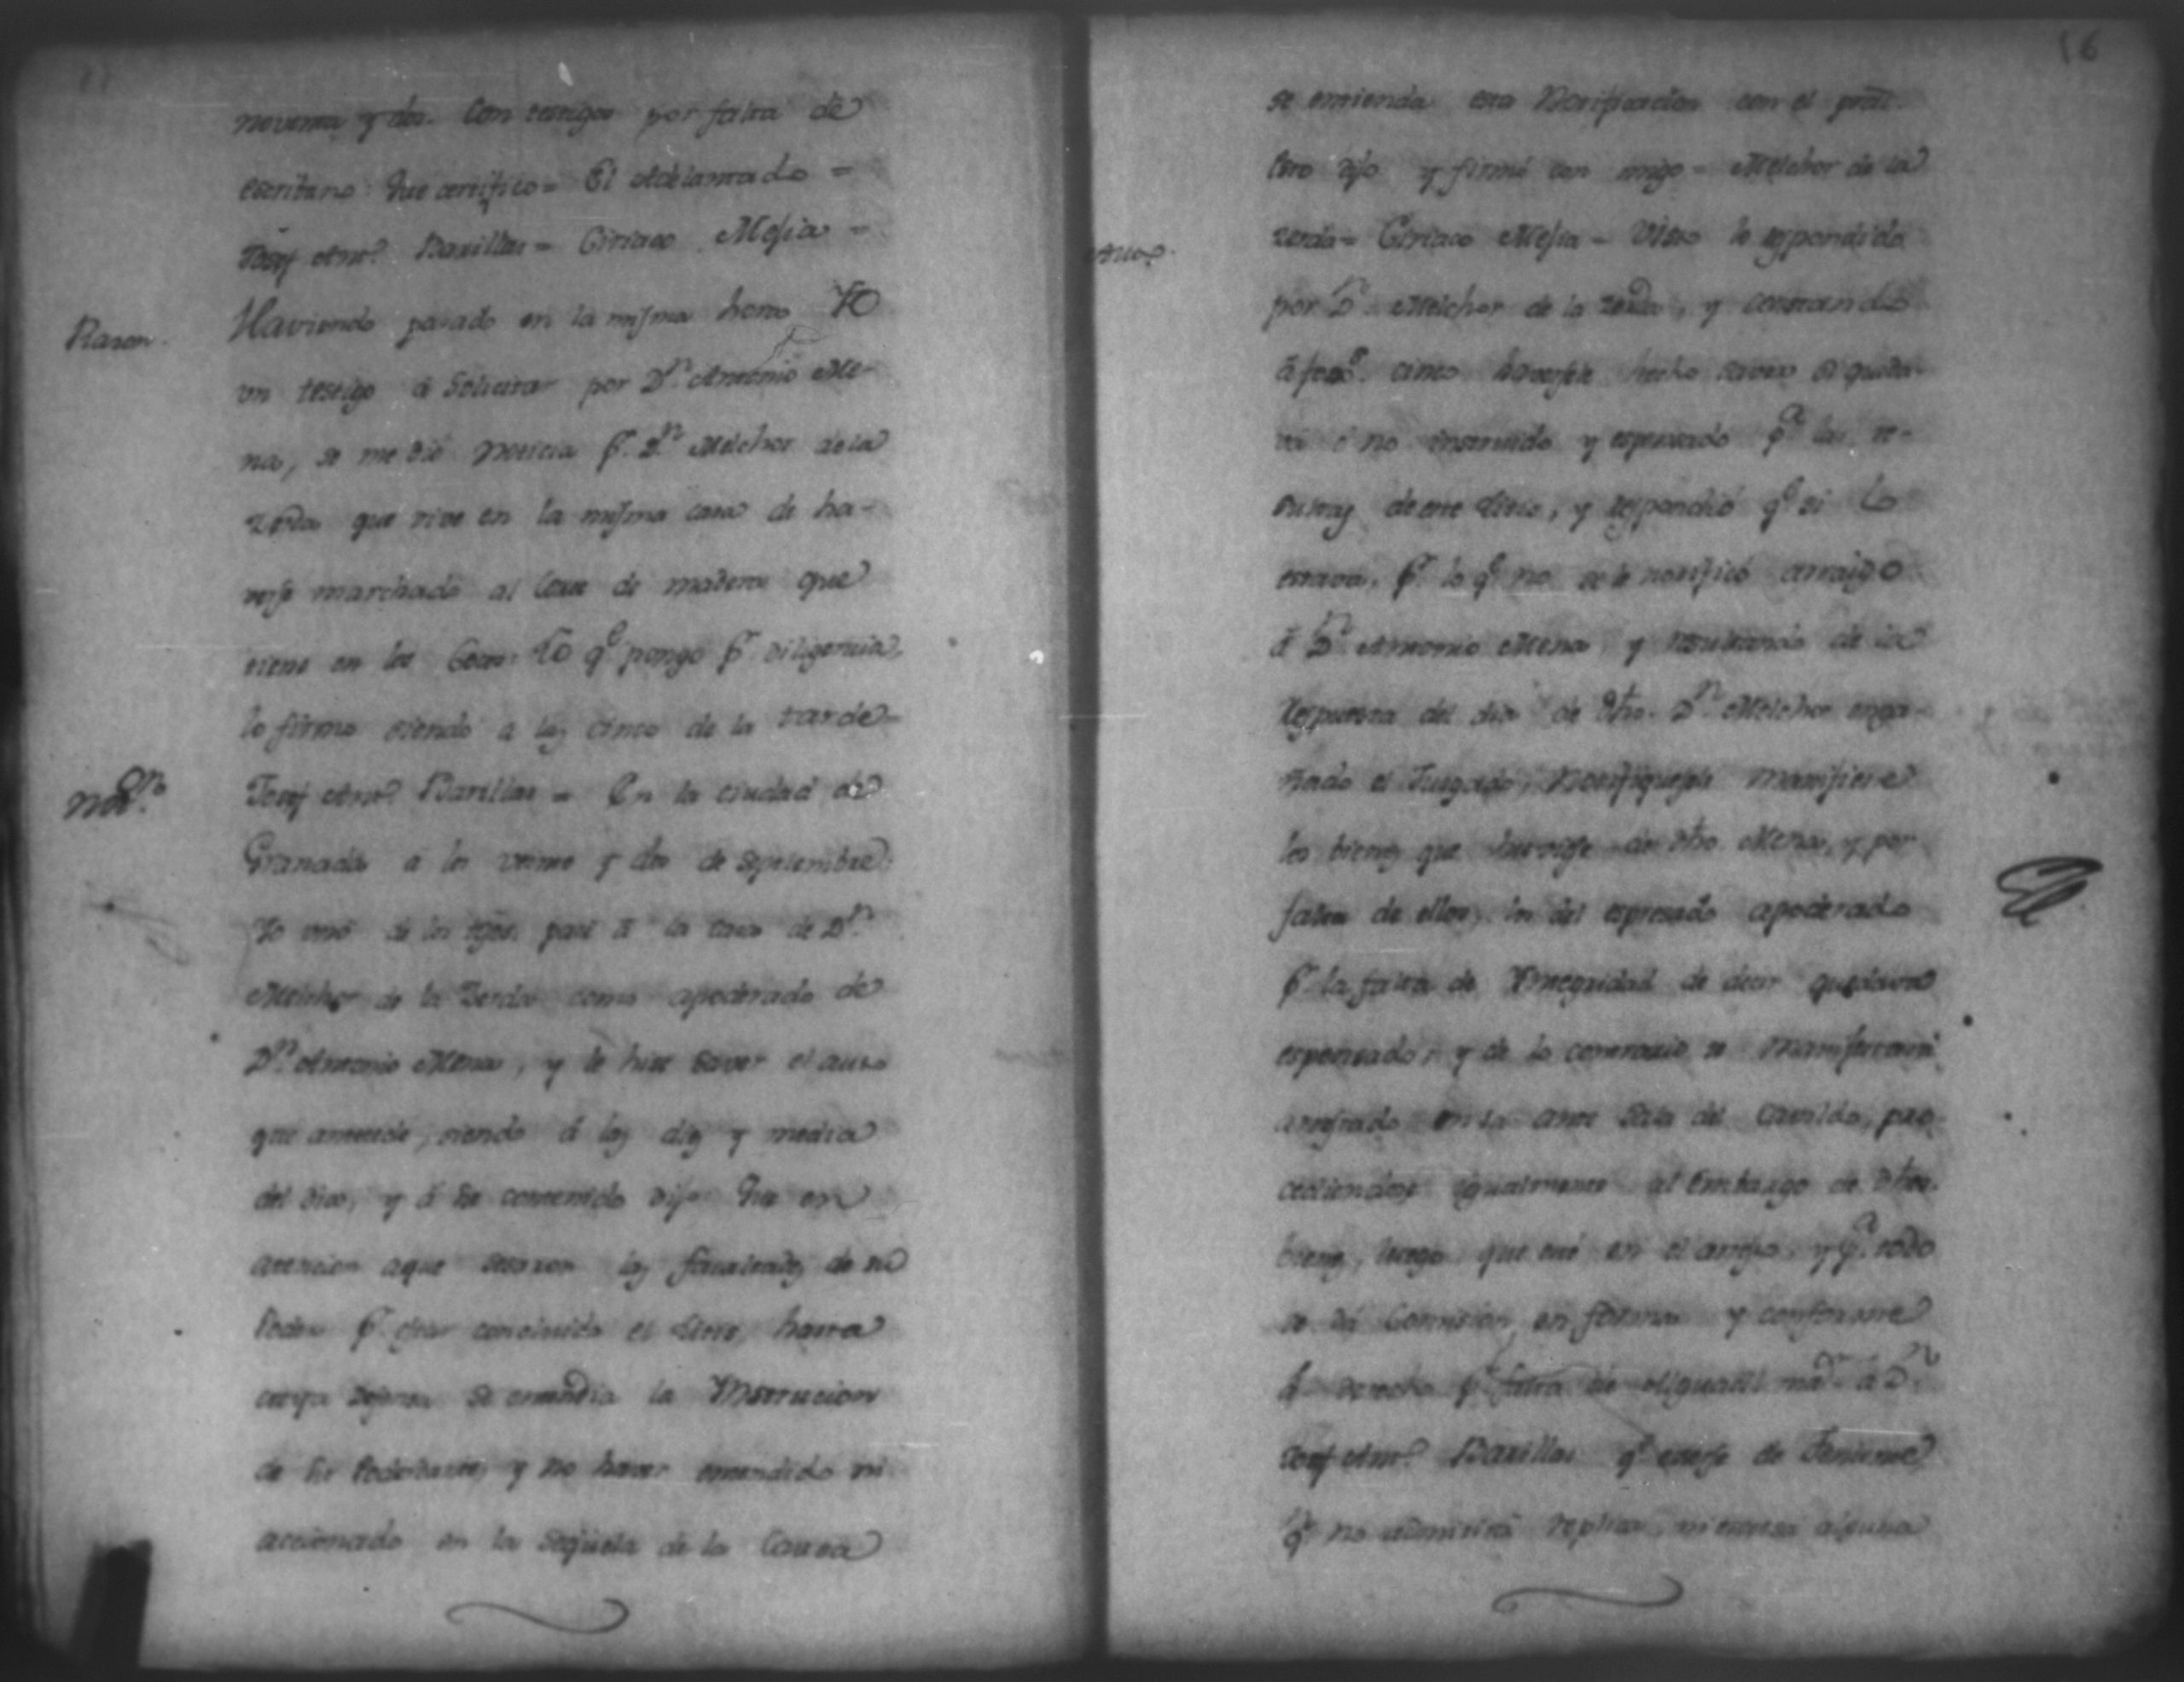 noventa y dos. Con testigos por falta de
escribano. Que certifico = El Adelantado =
Josef Anto. Barillas = Ciriaco Mesia =
Razon.
Haviendo pasado en la misma hora Yo
un testigo á solicitar por Dn. Antonio Me-
na, se me dió noticia pr. Dn. Melchor de la
Zerda que vive en la misma casa de ha-
verse marchado al Corte de madera que
tiene en la Lo qe. pongo pr. diligencia,
lo firmo siendo a las cinco de la tarde =
Josef Anto. Barillas = En la ciudad de
Noton.
Granada a los veinte y dos de Septiembre
Yo uno de los tgos. pasé á la casa de Dn.
Melchor de la Zerda como apoderado de
Dn. Antonio Mena, y le hise saver el auto
que antecede, siendo á las dies y media
del dia, y á su contenido dijo: Que en
atencion aque sesaron las facultades de su
Poder pr. estar concluido el Litis, hasta
cuya defensa se entendia la Ynstrucion
de su Poderdante, y no haver entendido ni
accionado en la sequela de la Causa
16
se entienda esta Notificacion con el
Esto dijo y firmó con migo = Melchor de la
Zerda = Ciriaco Mesia = Visto lo respondido
Auto.
por Dn. Melchor de la Zerda, y constando
á foxs. cinco haversele hecho saver si queda-
va ó no instruido y espensado pa. las re-
sultas de este Litis, y respondió qe. si lo
estava, pr. lo qe. no se le notificó arraigo
á Dn. Antonio Mena, y resultando de la
respuesta del dia de dho. Dn. Melchor enga-
ñado el Jusgado, Notifiquesele manifieste
los bienes que huviese de dho. Mena, y por
falta de ellos, los del espresado apoderado
pr. la falta de Yntegridad de decir quedava
espensado: y de lo contrario se mantendrá
arrestado en la ante Sala del Cavildo, pro-
cediendose igualmente al Embargo de dhos.
bienes, luego que esté en el arresto. y pa. todo
se dá Comision en forma y conforme
á derecho pr. falta de Alguacil mor. á Dn.
Josef Anto. Barillas qe. exerse de Teniente
qe. no admitirá replica, ni escusa alguna